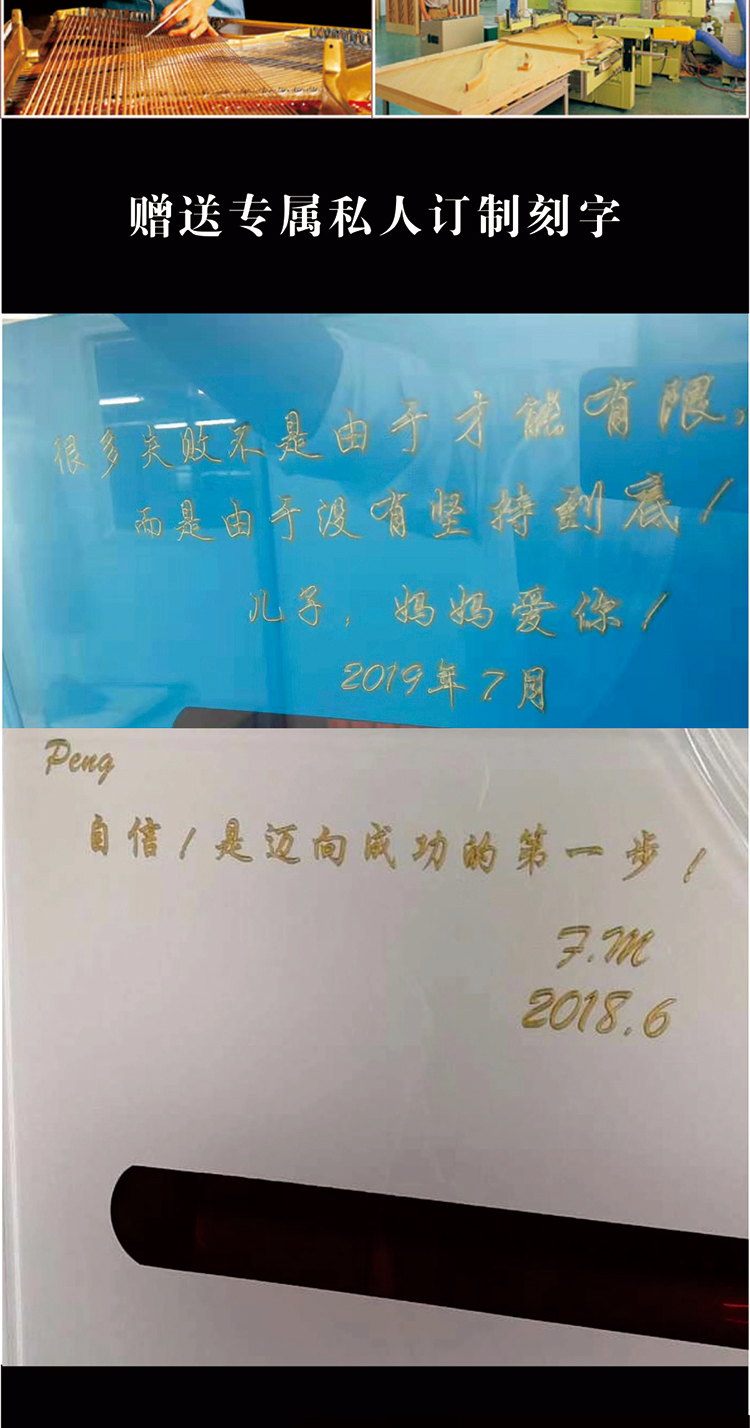 赠送专属私人订制刻字
很多失败不是由于才能有限，
而是由于没有坚持到底！
儿子，妈妈爱你！
2019年7月
Peng
自信！是迈向成功的第一步！
F.M
2018.6